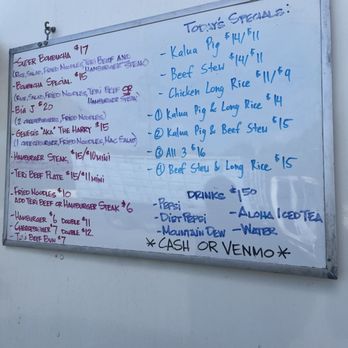 Super Bombucha $17
(Rice, Salad, Fried Noodles, Teri Beef and Hamburger Steak)
- Bombucha Special $15
(Rice, Salad, Fried Noodles, Teri Beef or Hamburger Steak)
- Big J $20
(2 Cheeseburgers, Fried Noodles)
- Genesis "AKA" The Harry $15
(1 Cheeseburger, Fried Noodles, Mac Salad)
- Hamburger Steak $15/$10 mini
- Teri Beef Plate $15/$11 mini
- Fried Noodles $10
Add Teri Beef or Hamburger Steak $6
- Hamburger $6 Double $11
- Cheeseburger $7 Double $12
- Teri Beef Bun $7
Today's Specials:
- Kalua Pig $14/$11
- Beef Stew $14/$11
- Chicken Long Rice $11/$9
- ① Kalua Pig & Long Rice $14
- ② Kalua Pig & Beef Stew $15
- ③ All 3 $16
- ④ Beef Stew & Long Rice $15
Drinks $1.50
- Pepsi
- Diet Pepsi
- Mountain Dew
- Aloha Iced Tea
- Water
*Cash or Venmo*